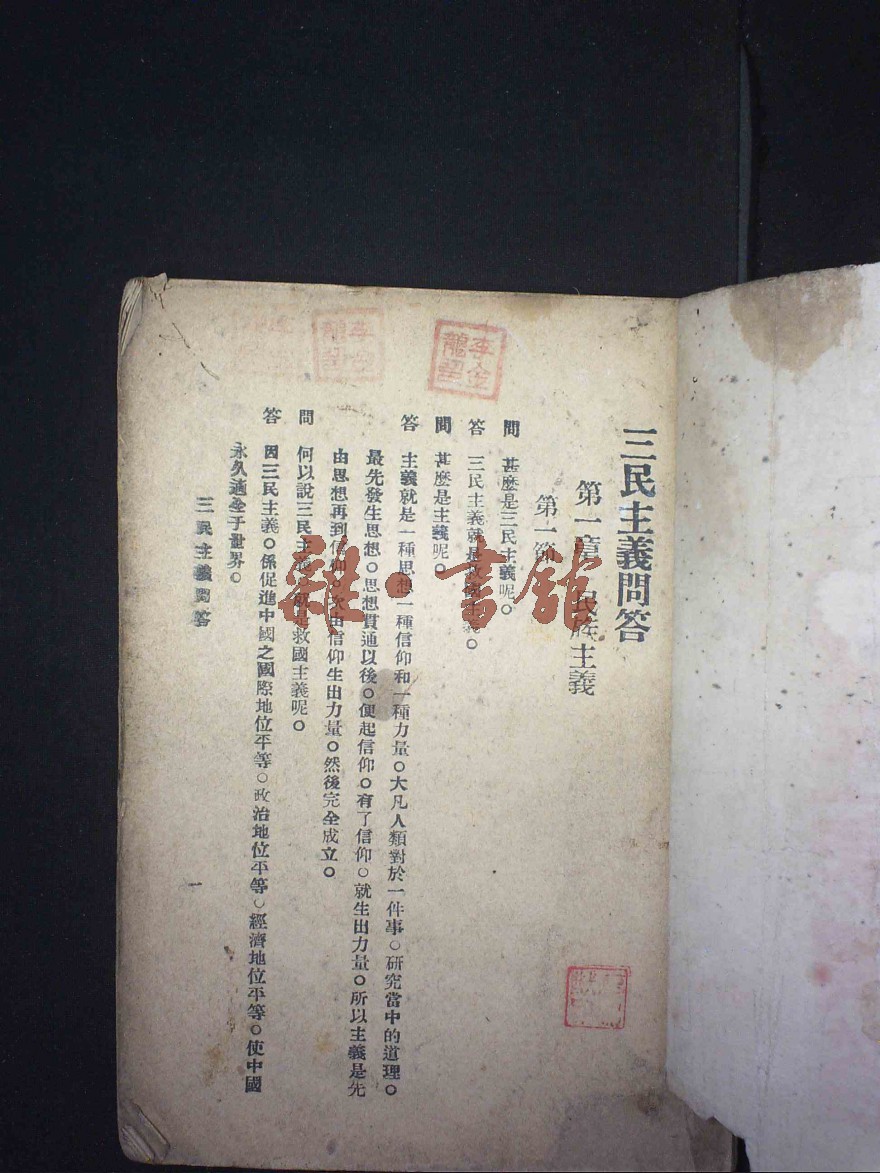 三民主義問答
第一章 民族主義
第一節
問 甚麼是三民主義呢。
答 三民主義就是救國主義。
問 甚麼是主義呢。
答 主義就是一種思想一種信仰和一種力量。大凡人類對於一件事。研究當中的道理。
最先發生思想。思想貫通以後。便起信仰。有了信仰。就生出力量。所以主義是先
由思想再到信仰。次由信仰生出力量。然後完全成立。
問 何以說三民主義就是救國主義呢。
答 因三民主義。係促進中國之國際地位平等。政治地位平等。經濟地位平等。使中國
永久適全于世界。
三民主義問答
一
李金龍印
李金龍印
雜·書館